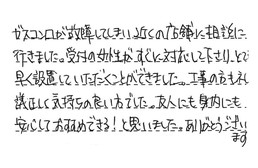 ガスコンロが故障してしまい近くの店舗に相談に
行きました。受付の女性がすぐに対応して下さり、とても
早く設置していただくことができました。工事の方も礼
儀正しく気持ちの良い方でした。友人にも身内にも
安心しておすすめできる！と思いました。ありがとうござい
ます